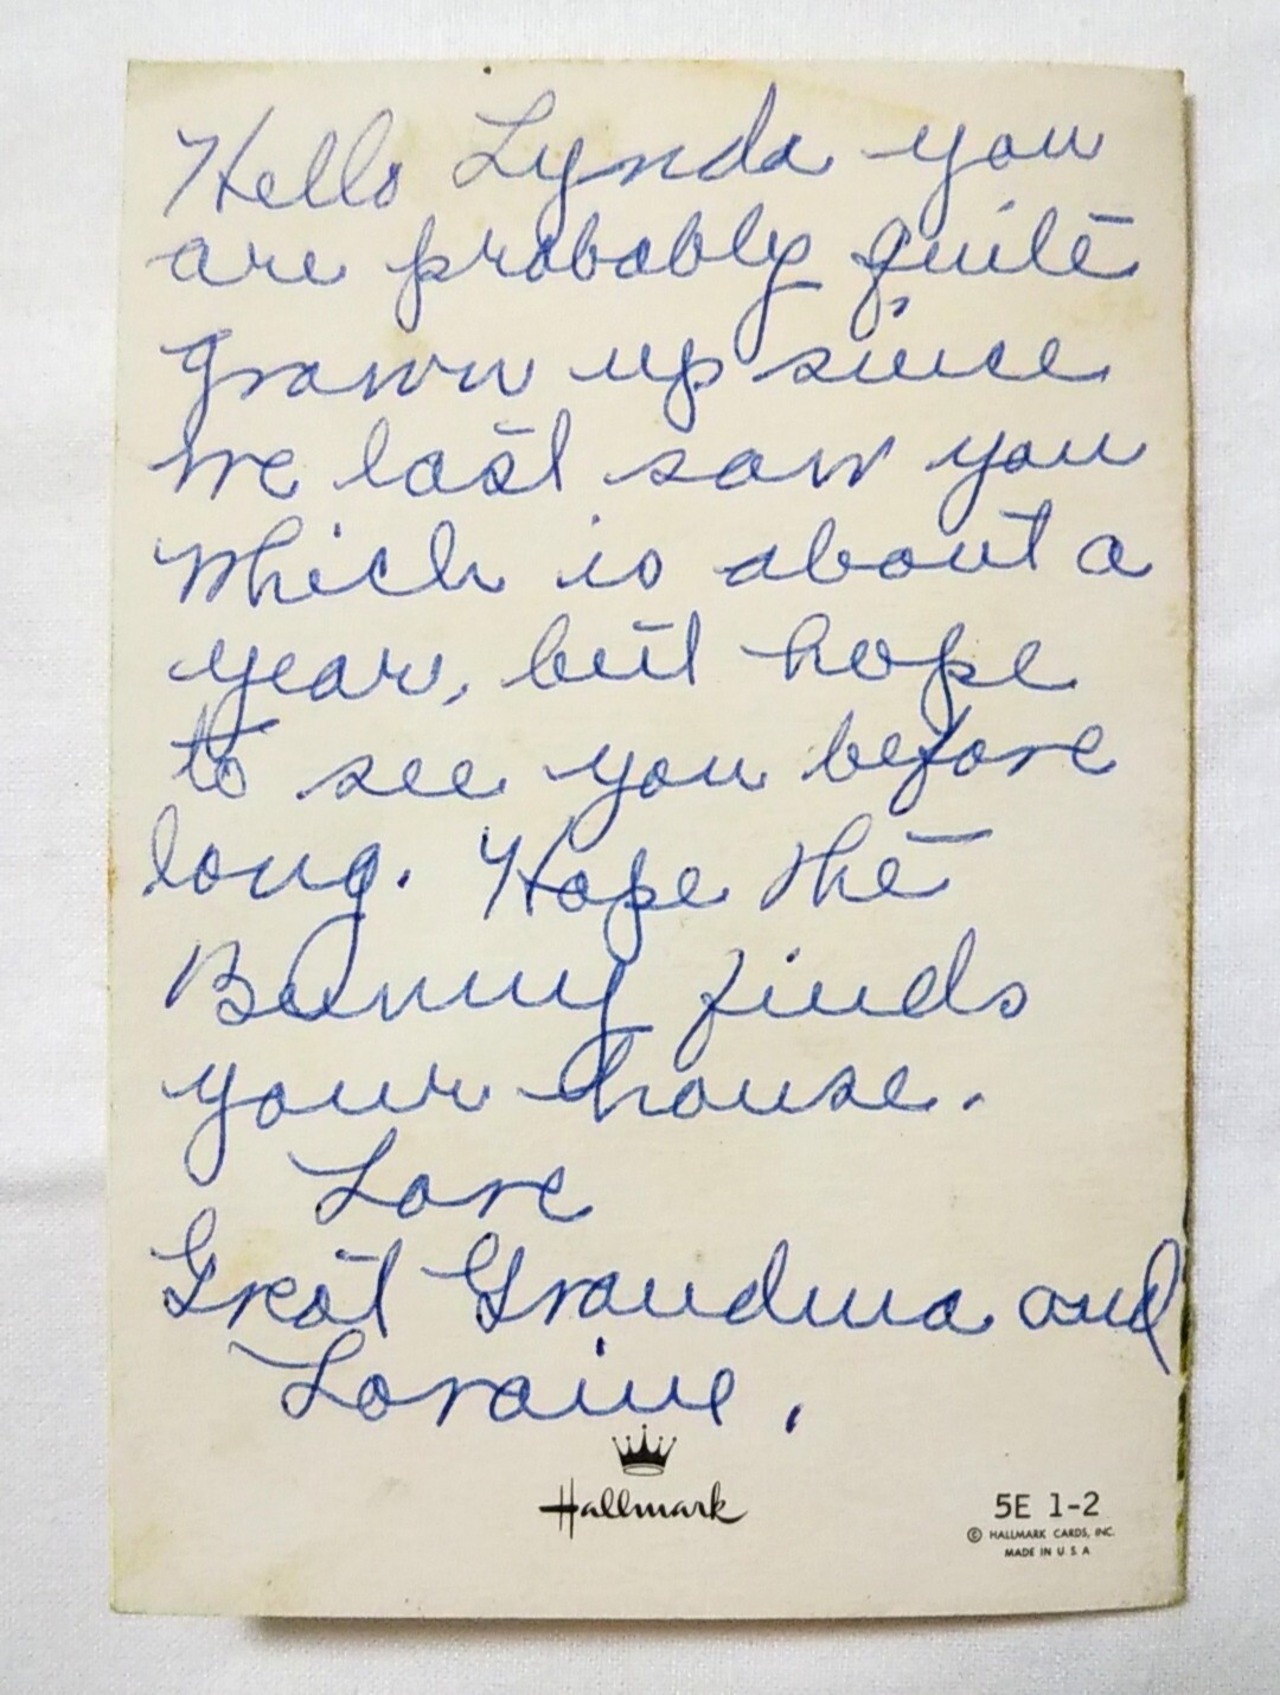 Hello Lynda you
are probably quite
grown up since
we last saw you
which is about a
year, but hope
to see you before
long. Hope the
Bunny finds
your house.
Love
Great Grandma and
Loraine.
Hallmark
5E 1-2
© HALLMARK CARDS, INC.
MADE IN U.S.A